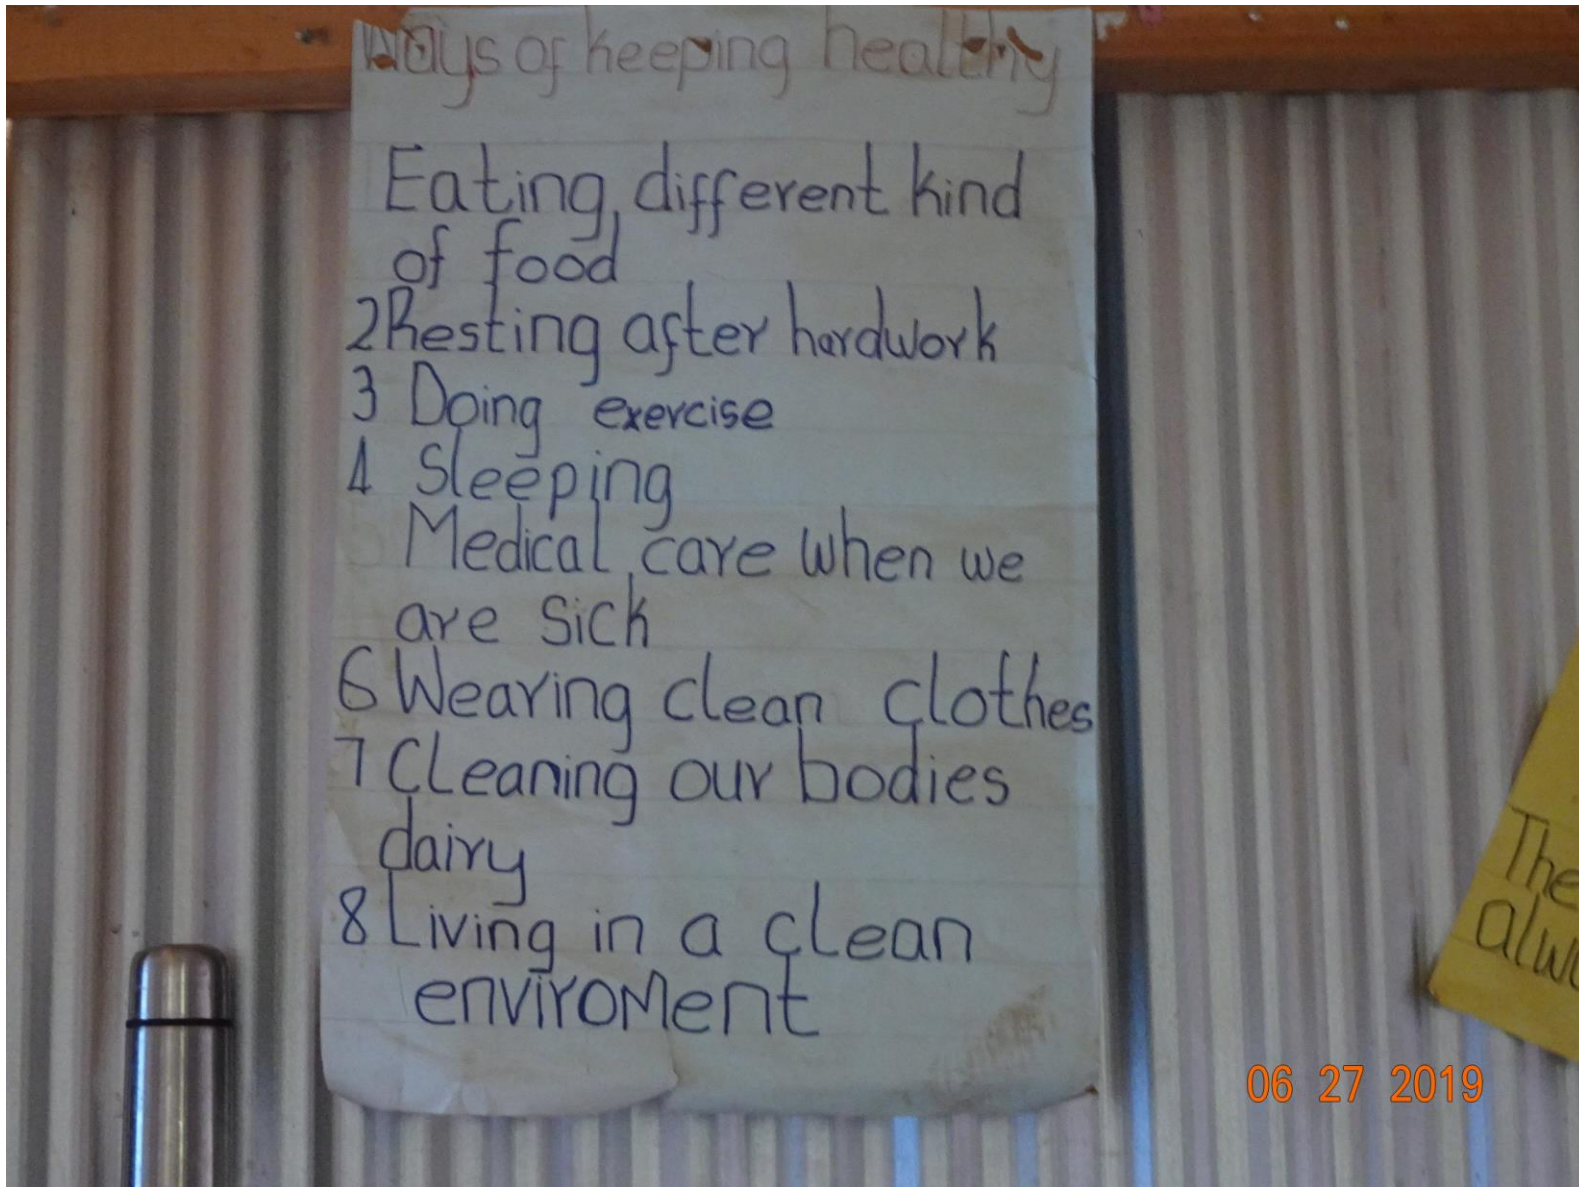 Ways of keeping healthy
Eating different kind
of food
2 Resting after hardwork
3 Doing exercise
4 Sleeping
Medical care when we
are sick
6 Wearing clean clothes
7 Cleaning our bodies
dairy
8 Living in a clean
enviroment
The
06 27 2019